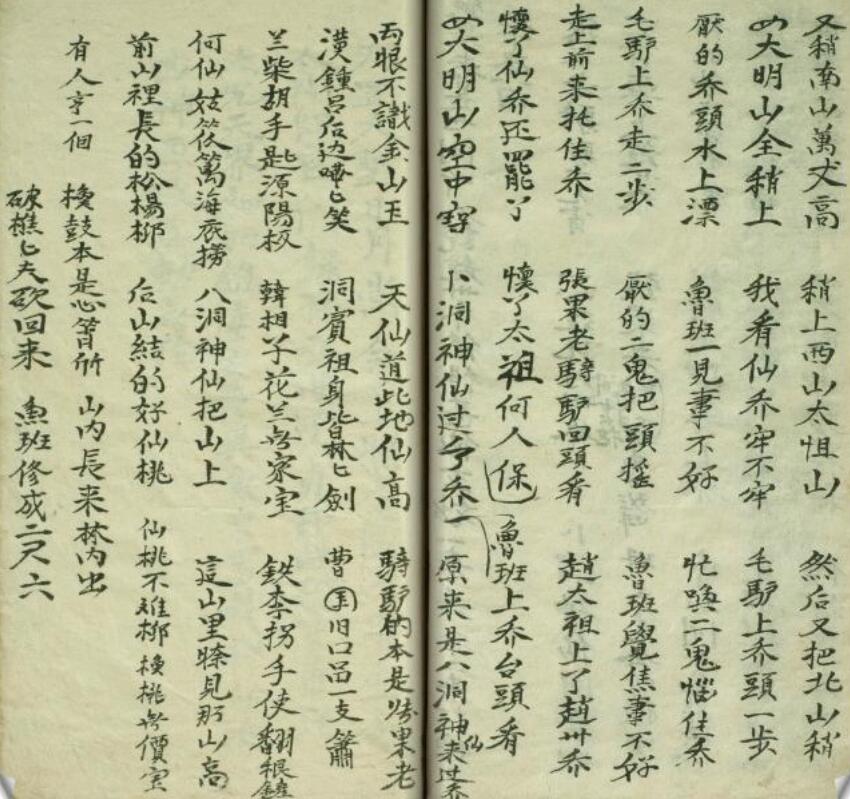 又稍南山萬丈高 稍上西山太怚山 然后又把北山稍
四大明山全稍上 我看仙乔牢不牢 毛馿上乔頭一步
厭的乔頭水上漂 魯班一見事不好 忙喚二鬼惱住乔
毛馿上乔走二步 厭的二鬼把頭摇 魯班覺焦事不好
走上前来托住乔 張果老騎馿回頭看 趙太祖上了趙州乔
懷了仙乔还罷了 懷了太祖何人保 魯班上乔台頭看
四大明山空中穿 八洞神仙过了乔一 原来是八洞神仙来过乔
両眼不識金山玉 天仙道此地仙高 騎馿的本是張果老
漢鍾吕后边嘩匕笑 洞賓祖身背林匕劍 曹国旧口吅一支簫
兰柴胡手匙源陽板 韓相子花兰無家宝 鉄李拐手使翻
何仙姑笊篱海底撈 八洞神仙把山上 這山里瞭見那山高
前山裡長的松楊柳 后山結的好仙桃 仙桃不难柳 桃無價宝
有人亨一個 鼓本是心 山内長来林内出
砍樵匕夫砍回来 魚班修成二尺六